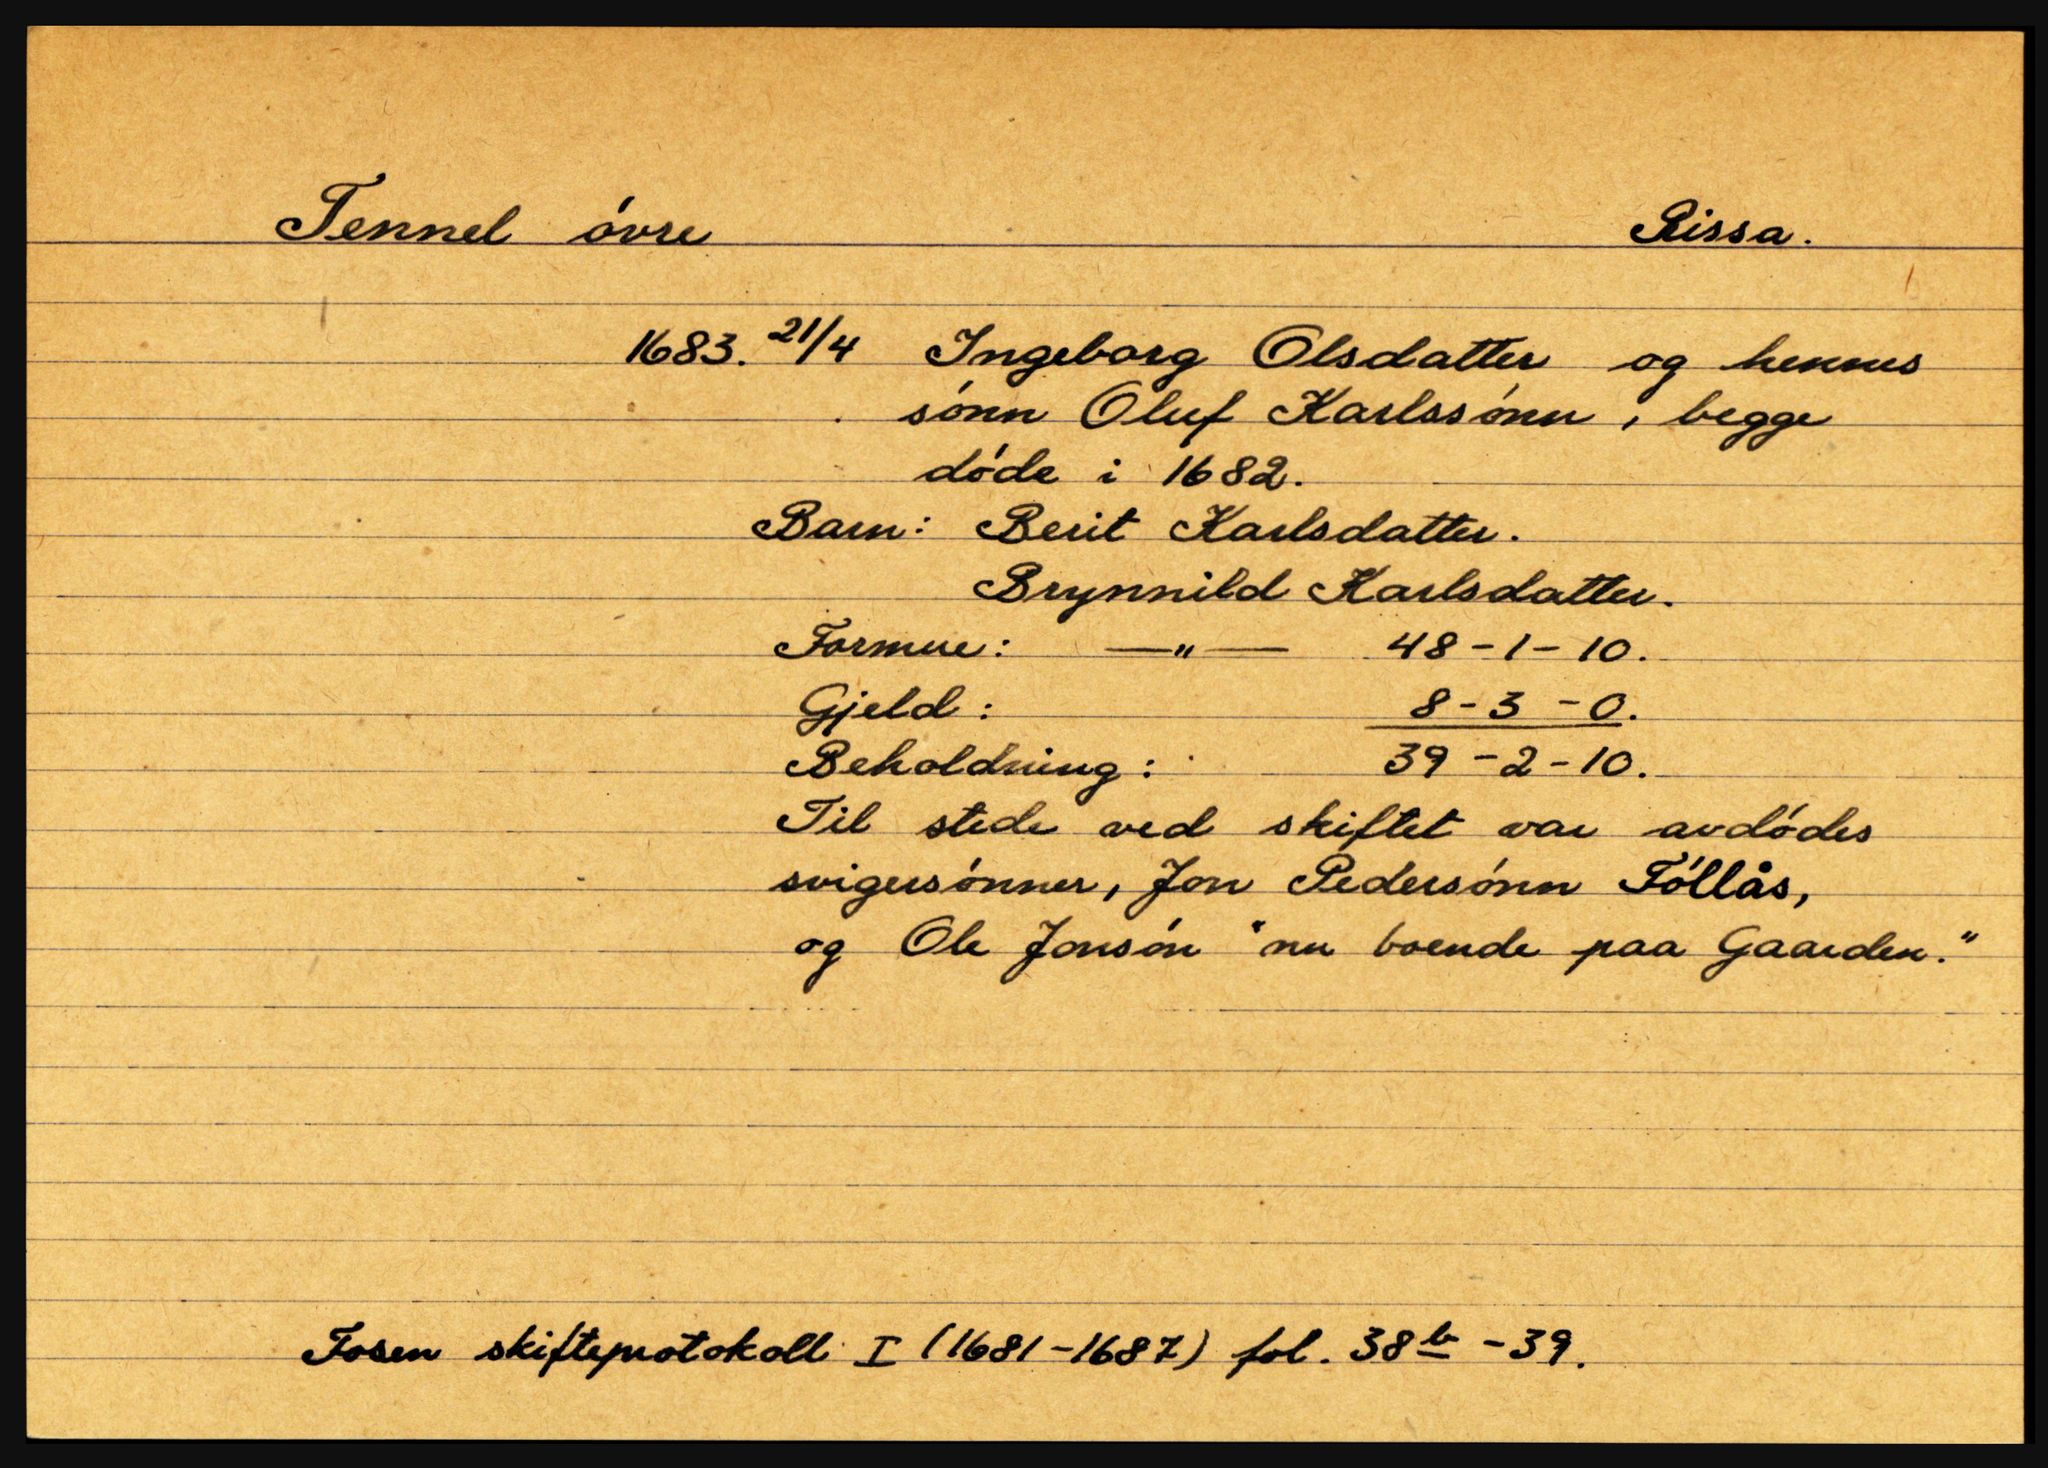 Tennel óvre Rissa.
1683. 21/4 Ingeborg Olsdatter og hennes
sónn Oluf Karlssónn, begge
dóde i 1682.
Barn: Berit Karlsdatter.
Brynnild Karlsdatter.
Formue: —"— 48-1-10.
Gjeld: 8-3-0.
Beholdning: 39-2-10.
Til stede ved skiftet var avdódes
svigersónner, Jon Pedersónn Fóllås,
og Ole Jonsón "nu boende paa Gaarden."
Fosen skifteprotokoll I (1681-1687) fol. 38b-39.